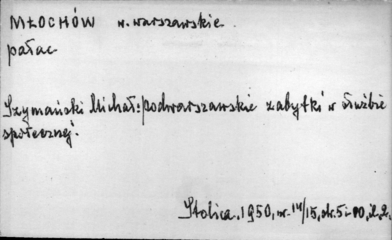 MŁOCHÓW w. warszawskie
pałac
Szymański Michał: podwarszawskie zabytki w służbie
społecznej.
Stolica, 1950, nr. 14/15, str. 5 i 10, il. 2.